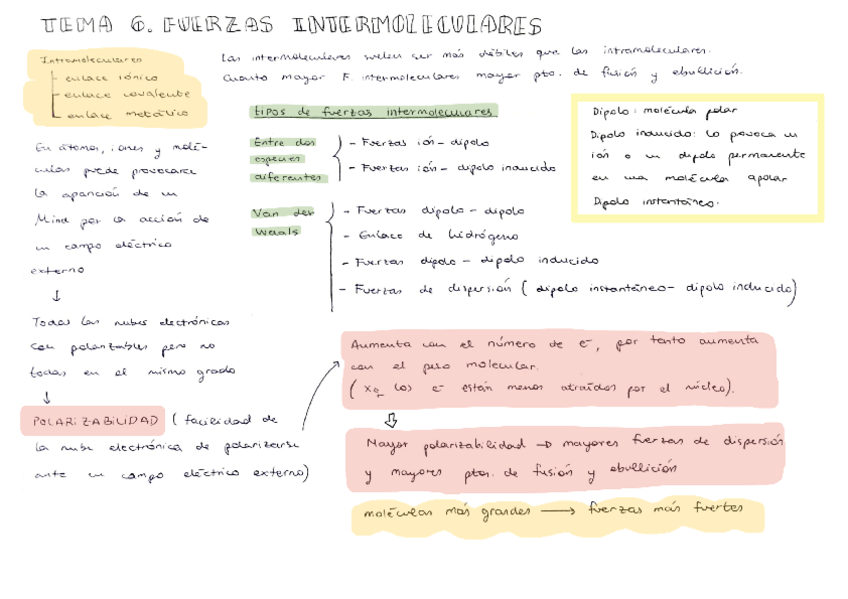 TEMA 6. FUERZAS INTERMOLECULARES
Intramoleculares
enlace iónico
enlace covalente
enlace metálico
Las intermoleculares suelen ser más débiles que las intramoleculares.
Cuanto mayor F. intermoleculares mayor pto. de fusión y ebullición.
En átomos, iones y molé-
culas puede provocarse
la aparición de un
Mind por la acción de
un campo eléctrico
externo
↓
Todas las nubes electrónicas
son polarizables pero no
todas en el mismo grado
↓
POLARIZABILIDAD (facilidad de
la nube electrónica de polarizarse
ante un campo eléctrico externo)
tipos de fuerzas intermoleculares
Entre dos
especies
diferentes
- Fuerzas ión - dipolo
- Fuerzas ión - dipolo inducido
Van der
Waals
- Fuerzas dipolo - dipolo
- Enlace de hidrógeno
- Fuerzas dipolo - dipolo inducido
- Fuerzas de dispersión (dipolo instantáneo - dipolo inducido)
Dipolo: molécula polar
Dipolo inducido: lo provoca un
ión o un dipolo permanente
en una molécula apolar
Dipolo instantáneo.
Aumenta con el número de e⁻, por tanto aumenta
con el peso molecular.
(xq los e⁻ están menos atraídos por el núcleo).
⇩
Mayor polarizabilidad → mayores fuerzas de dispersión
y mayores ptos. de fusión y ebullición
moléculas más grandes → fuerzas más fuertes